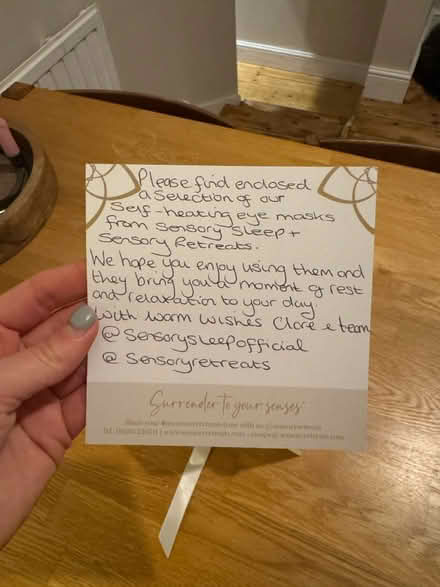 Please find enclosed
a selection of our
Self-heating eye masks
from Sensory Sleep +
Sensory Retreats.
We hope you enjoy using them and
they bring you a moment of rest
and relaxation to your day.
With warm wishes Clare & team
@Sensorysleepofficial
@Sensoryretreats
Surrender to your senses